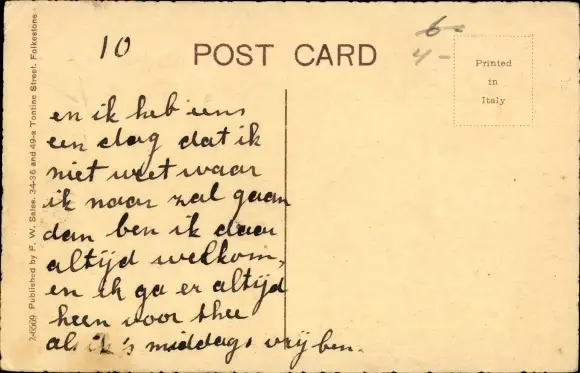 10
POST CARD
6-
4-
Printed
in
Italy
en ik heb eens
een dag dat ik
niet weet waar
ik naar zal gaan
dan ben ik daar
altijd welkom,
en ik ga er altijd
heen voor thee
als ik 's middags vrij ben.
Published by F. W. Sales. 34-36 and 49-a Tontine Street. Folkestone